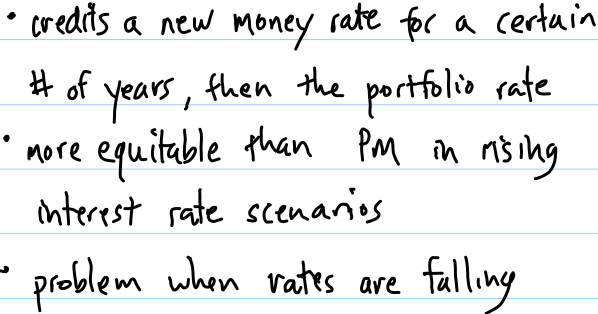 • credits a new money rate for a certain
# of years, then the portfolio rate
• more equitable than PM in rising
interest rate scenarios
• problem when rates are falling